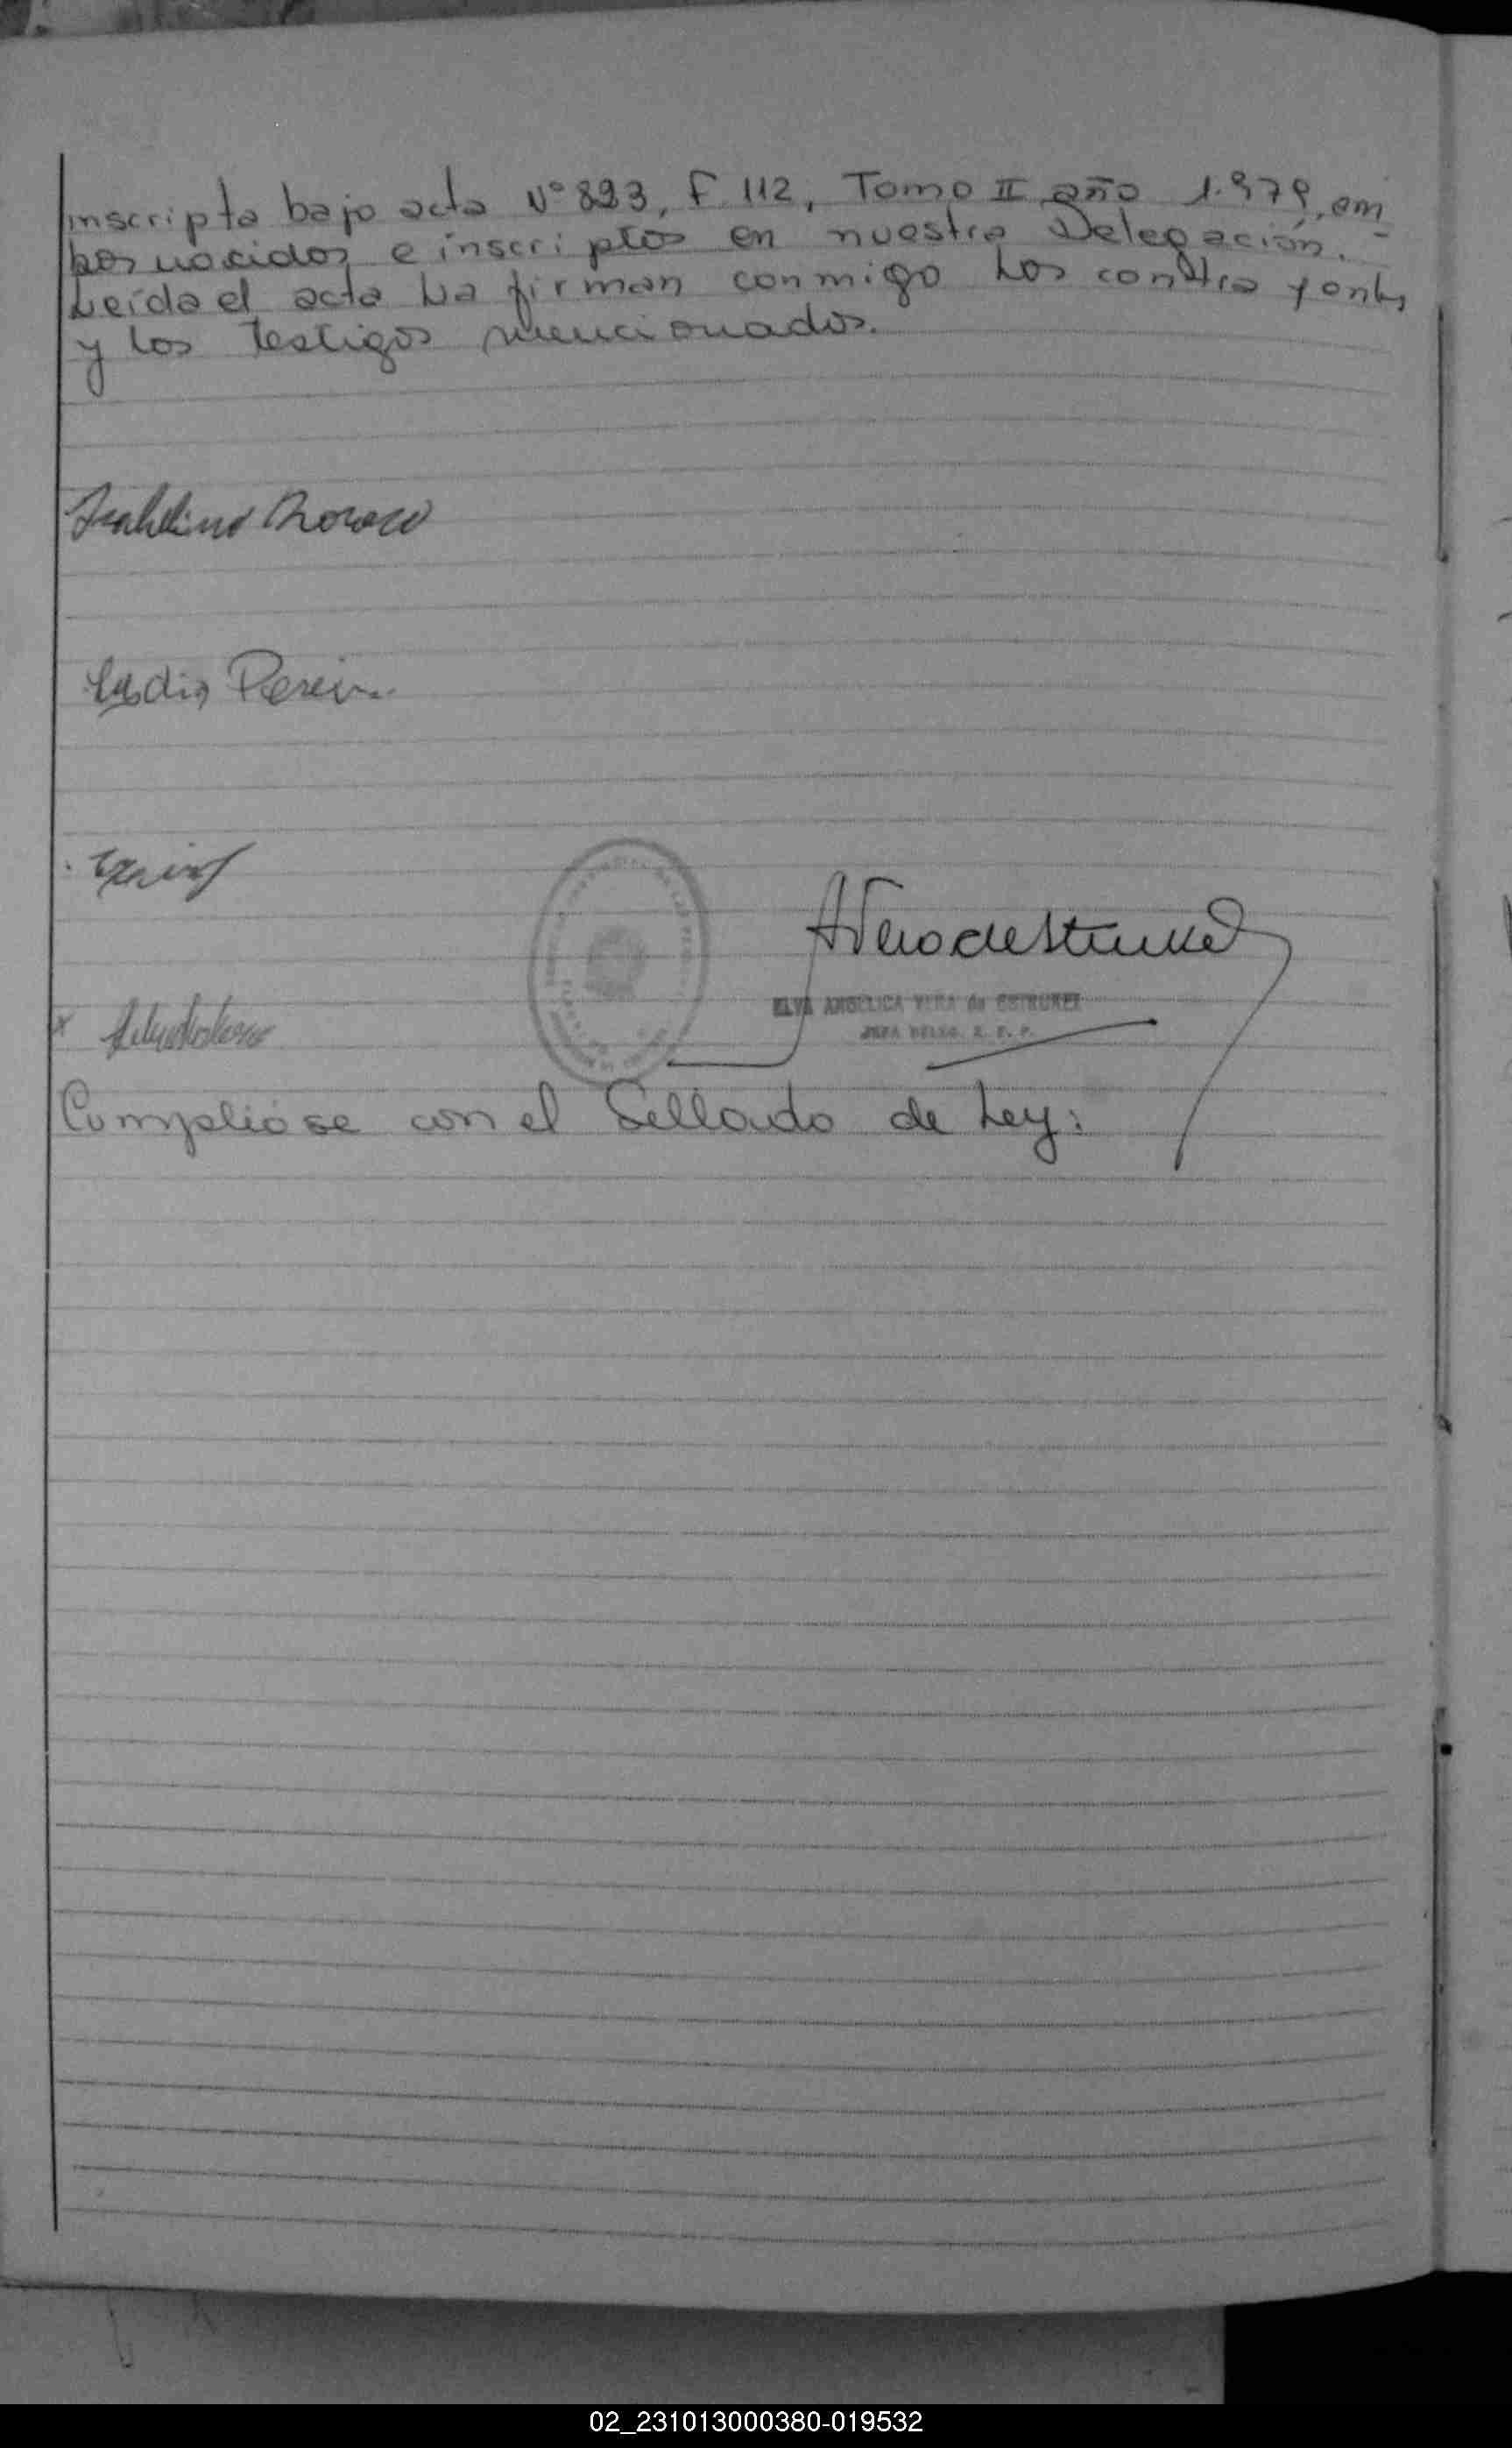 inscripta bajo acta N° 893, F 112, Tomo II año 1.979, am
bos nacidos e inscriptos en nuestra Delegación.
Leída el acta La firman conmigo Los contra yentes
y los testigos mencionados.
Lydia Perei
AVera de Strukel
ELVA ANGELICA VERA de
JEFA DELEG. R. C. P.
Cumplióse con el Sellado de Ley:
02_231013000380-019532